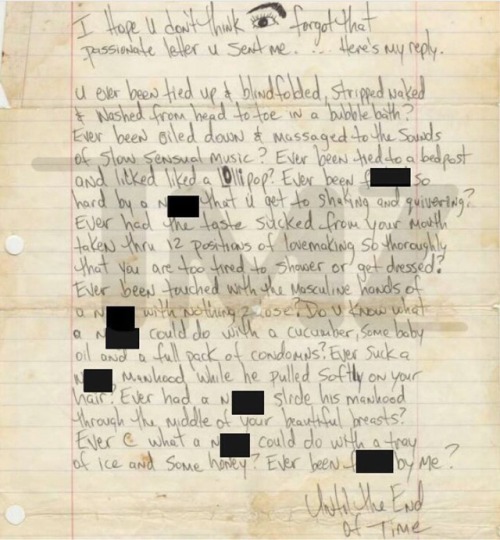 I Hope u don't think forgot that
passionate letter u sent me. ... Here's my reply.
u ever been tied up & blindfolded, stripped naked
& washed from head to toe in a bubble bath?
Ever been oiled down & massaged to the sounds
of slow sensual music? Ever been tied to a bedpost
and licked liked a lollipop? Ever been f so
hard by a n that u get to shaking and quivering?
Ever had the taste sucked from your mouth
taken thru 12 positions of lovemaking so thoroughly
that you are too tired to shower or get dressed?
Ever been touched with the masculine hands of
a n with nothing 2 lose? Do u know what
a n could do with a cucumber, some baby
oil and a full pack of condomns? Ever suck a
n manhood while he pulled softly on your
hair? Ever had a n slide his manhood
through the middle of your beautiful breasts?
Ever C what a n could do with a tray
of ice and some honey? Ever been f by me?
Until the End
of Time
TMZ